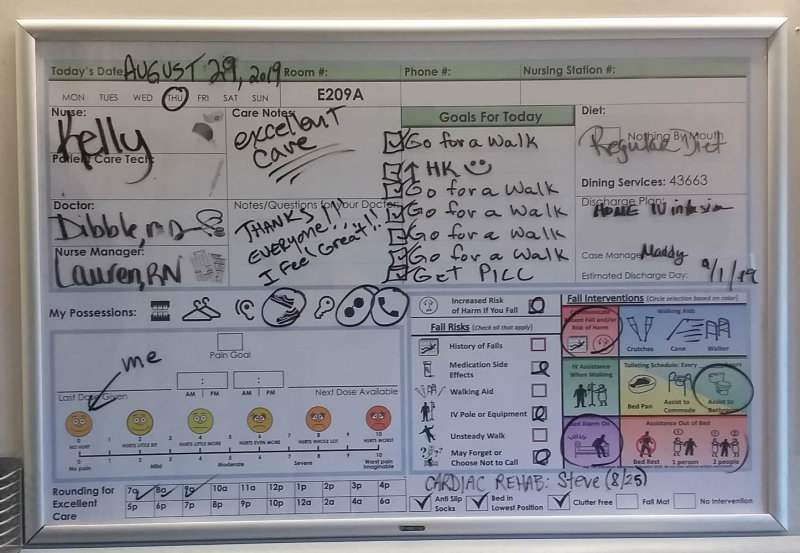 Today's Date: AUGUST 29, 2019 Room #: Phone #: Nursing Station #:
MON TUES WED THU FRI SAT SUN E209A
Nurse: Kelly
Patient Care Tech:
Care Notes:
excellent
care
Goals For Today
Go for a Walk
↑ HK ☺
Go for a Walk
Go for a Walk
Go for a Walk
Go for a Walk
GET PICC
Diet:
Nothing By Mouth
Regular Diet
Dining Services: 43663
Doctor:
Dibble, MD
Nurse Manager:
Lauren, RN
Notes/Questions for your Doctor:
THANKS
EVERYONE!!
I feel Great!!!!
Discharge Plan:
HOME IV infusion
Case Manager: Maddy
Estimated Discharge Day: 9/1/19
My Possessions:
me
Pain Goal
Last Dose Given : AM PM : AM PM Next Dose Available
0 2 4 6 8 10
NO HURT HURTS LITTLE BIT HURTS LITTLE MORE HURTS EVEN MORE HURTS WHOLE LOT HURTS WORST
0 1 2 3 4 5 6 7 8 9 10
No pain Mild Moderate Severe Worst pain imaginable
Increased Risk
of Harm If You Fall
Fall Risks (Check all that apply)
History of Falls
Medication Side
Effects
Walking Aid
IV Pole or Equipment
Unsteady Walk
May Forget or
Choose Not to Call
Fall Interventions (Circle selection based on color)
Communicate
Recent Fall and/or
Risk of Harm
Walking Aids
Crutches Cane Walker
IV Assistance
When Walking
Toileting Schedule: Every
Bed Pan
Assist to
Commode
Assist to
Bathroom
Bed Alarm On
Assistance Out of Bed
Bed Rest 1 person 2 people
Rounding for
Excellent
Care
7a 8a 9a 10a 11a 12p 1p 2p 3p 4p
5p 6p 7p 8p 9p 10p 12a 2a 4a 6a
CARDIAC REHAB: Steve (8/25)
Anti Slip
Socks
Bed in
Lowest Position
Clutter Free
Fall Mat
No Intervention